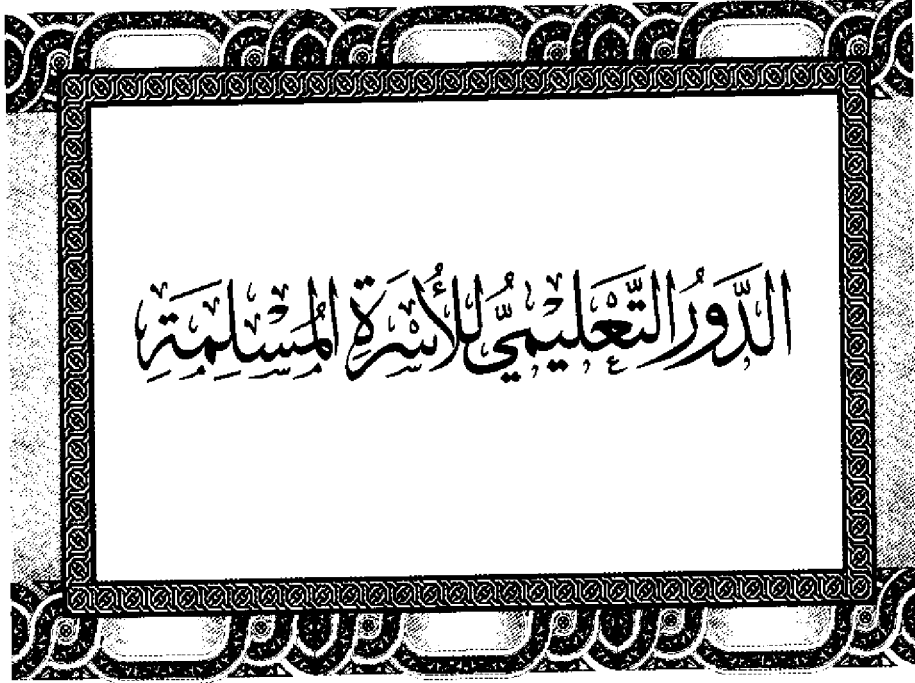 الدَّوْرُ التَّعْلِيْمِيُّ لِلْأُسْرَةِ الْمُسْلِمَةِ